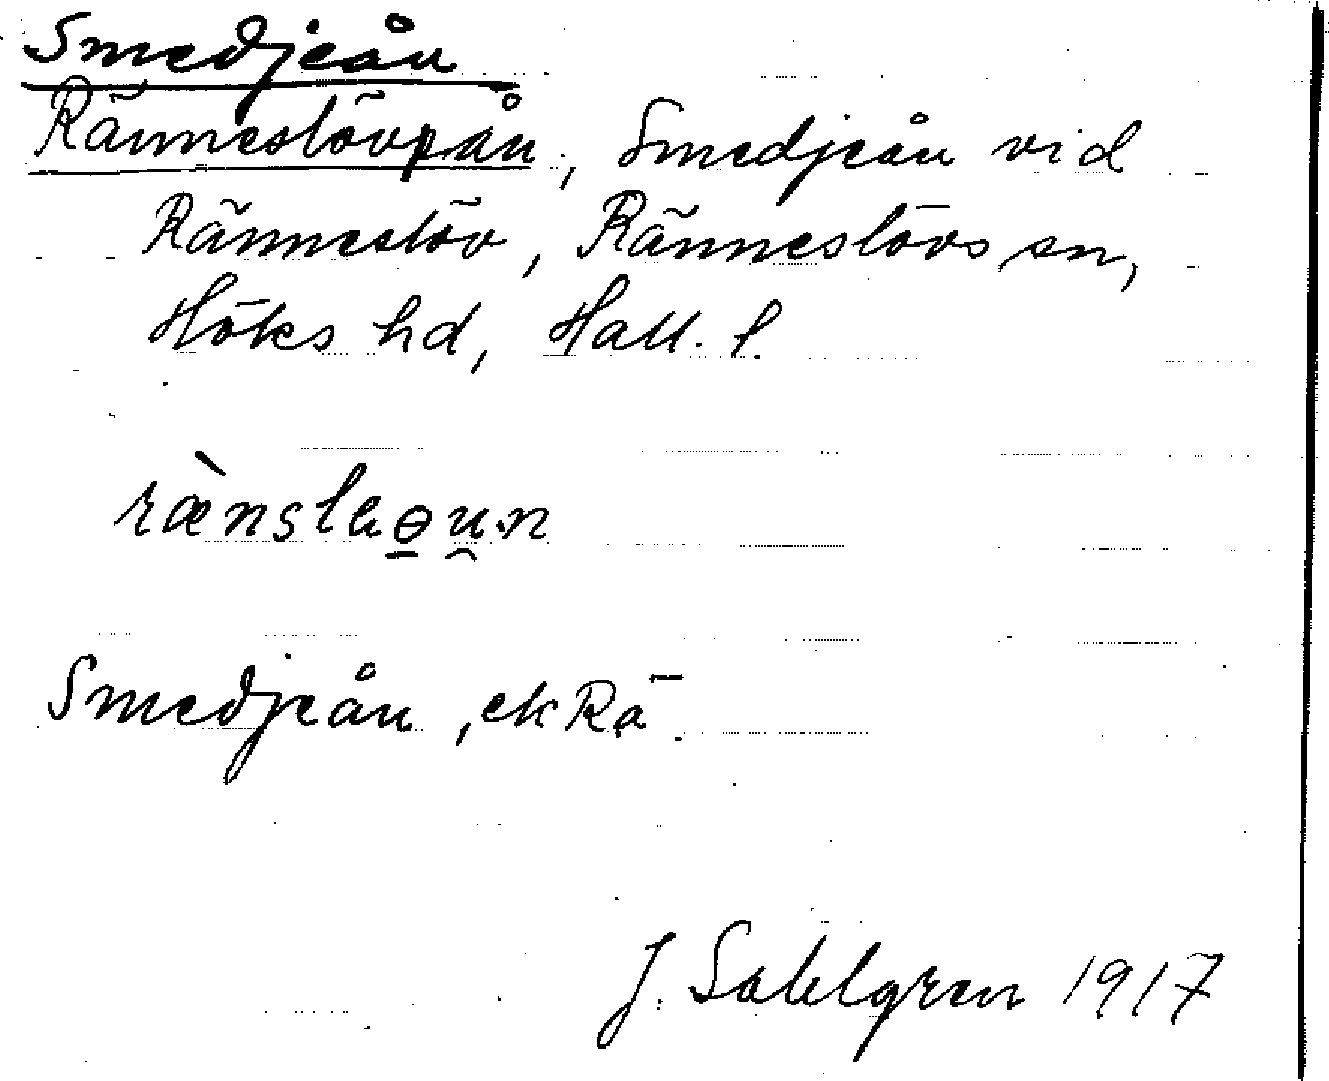 Smedjeån
Ränneslövsån, Smedjeån vid
Ränneslöv, Ränneslövs sn,
Höks hd, Hall. l.
Smedjeån, ek Rä
J. Sahlgren 1917